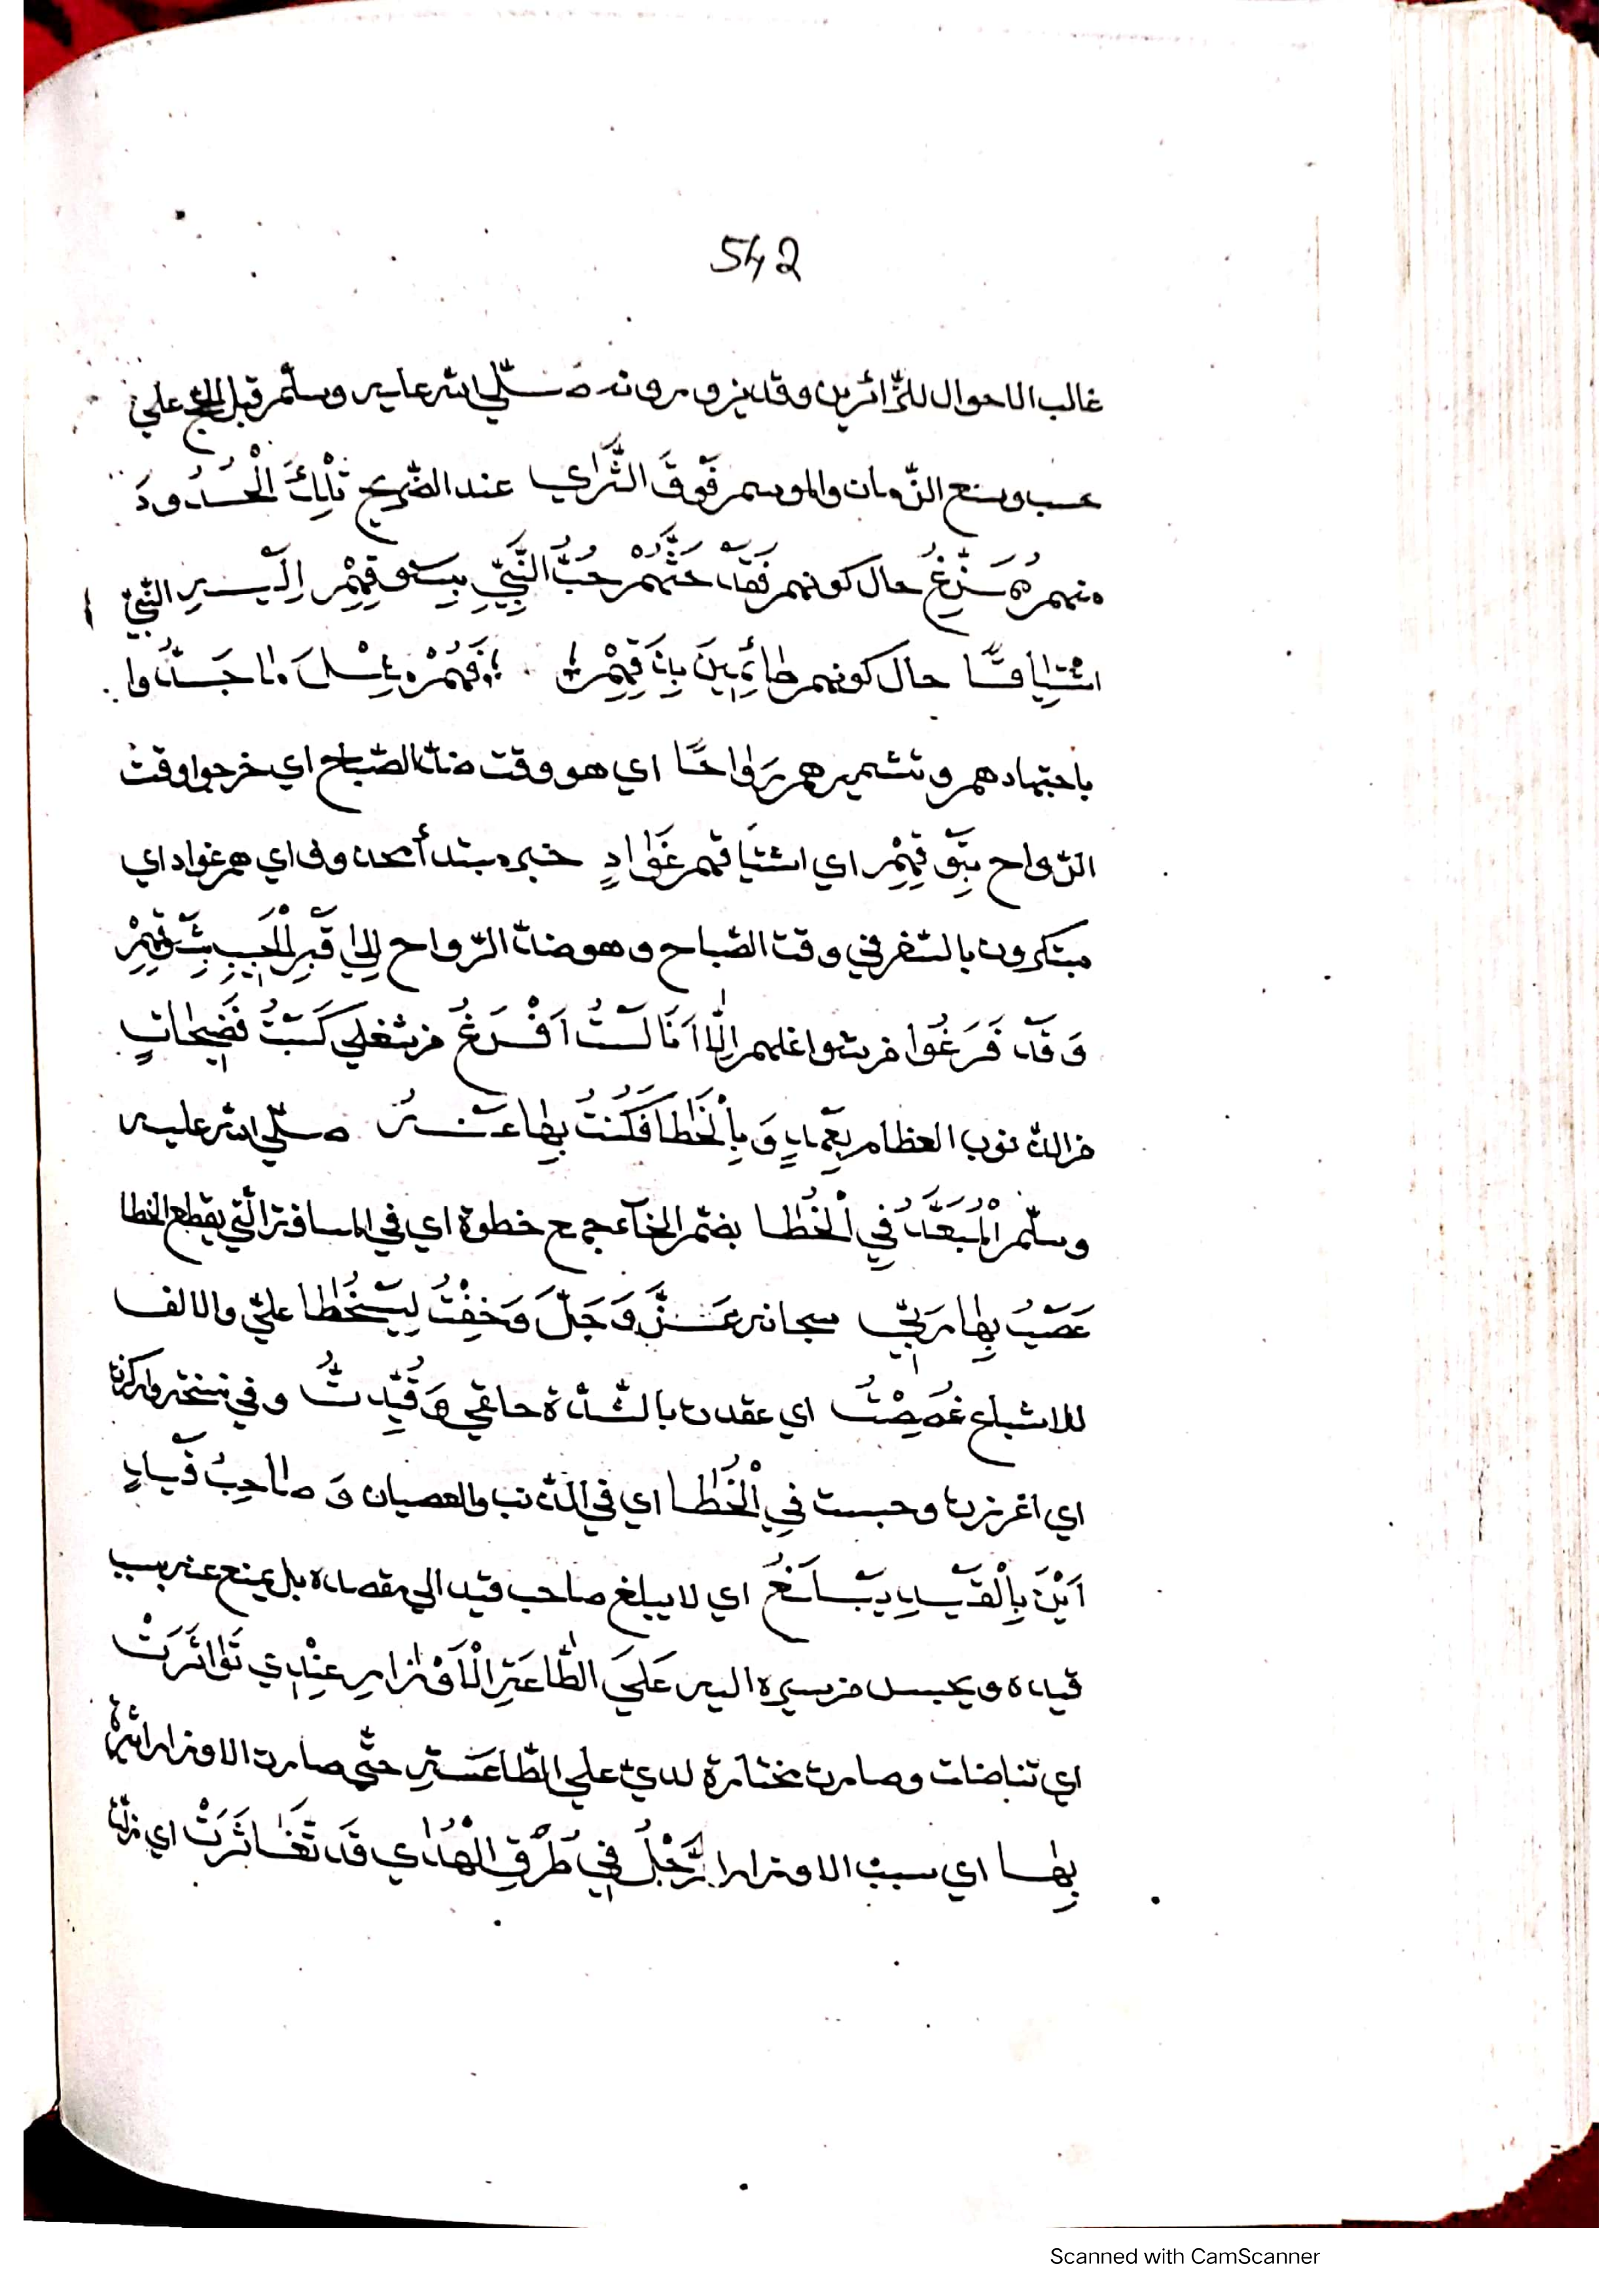 542
غالب الاحوال للزّائرين وقد يزورونه صلّي الله عليه وسلّم قبل الحجّ علي
حسب وسع الزّمان والموسم فَوْقَ الثَّرٰي عند الضّريح تِلْكَ الْخُدُودَ
منهم حال كونهم فَقَدْ حَثَّهُمْ حُبُّ النَّبِيِّ بِسَوْقِهِمْ اِلَيْهِ النّبيّ
اشْتِيَاقًا حال كونهم طائِرِينَ فَهُمْ مَا جَدُّوا
باجتهادهم وتشميرهم رَوَاحًا اي هو وقت ضدّ الصّباح اي خرجوا وقت
الرّواح بِتَوْقِهِمْ اي اشتياقهم غَوَادٍ خبر مبتدأ محذوف اي هم غواد اي
مبتكرون بالسّفر في وقت الصّباح وهو ضدّ الرّواح اِلٰي قَبْرِ الْحَبِيبِ بِشَوْقِهِمْ
وَقَدْ فَرَغُوا من شواغلهم اِلَّا اَنَا لَسْتُ اَفْرَغُ من شغلي كَسَبْتُ فَضِيحَاتٍ
من الذّنوب العظام بِعَمْدٍ وَبِالْخَطَا فَكُنْتُ بِهَا عَنْهُ صلّي الله عليه
وسلّم الْمُبَعَّدُ فِي الْخُطَا بضمّ الخآء جمع خطوة اي في المسافة الّتي يقطع الخطا
عَصَيْتُ بِهَا رَبِّي سبحانه عَزَّ وَجَلَّ وَخِفْتُ لِيَسْخُطَا عليّ والالف
للاشباع غُصِصْتُ اي عقدت بالشّدّة حلقي وَقُيِّدتُّ وفي نسخة وَارْكِزْتُ
اي اغرزت وحبست فِي الْخَطَا اي في الذّنب والعصيان وَصَاحِبُ قَيْدٍ
اَيْنَ بِالْقَيْدِ يَبْلُغُ اي لا يبلغ صاحب قيد الي مقصده بل يمنع عنه بسبب
قيده ويحبس من سيره اليه عَلَي الطَّاعَةِ الْاَوْزَارُ عِنْدِي تَوَاثَرَتْ
اي وصارت مختارة لديّ علي الطّاعة حتّي صارت الاوزار
بِهَا اي سبب الاوزار الرِّجْلُ فِي طُرْقِ الْهُدٰي قَدْ تَعَاثَرَتْ اي زلّت
Scanned with CamScanner